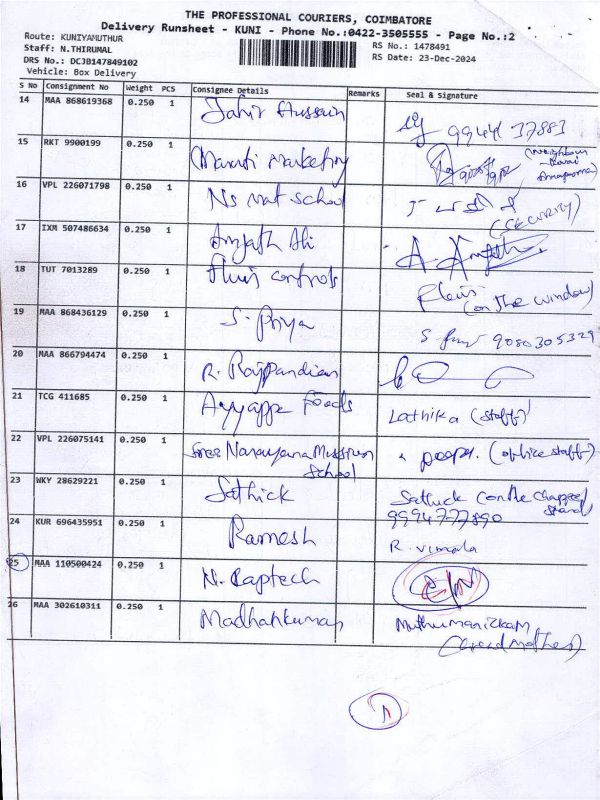 THE PROFESSIONAL COURIERS, COIMBATORE
Delivery Runsheet - KUNI - Phone No.:0422-3505555 - Page No.:2
Route: KUNIYAMUTHUR
Staff: N.THIRUMAL
DRS No.: DCJB147849102
Vehicle: Box Delivery
RS No.: 1478491
RS Date: 23-Dec-2024
S No Consignment No Weight PCS Consignee Details Remarks Seal & Signature
14 MAA 868619368 0.250 1 Jahir Hussain 99441 37883
15 RKT 9900199 0.250 1 Maruti Marketing (Neighbour
16 VPL 226071798 0.250 1 Ns mat school (SECURITY)
17 IXM 507486634 0.250 1 Amjath Ali A. Amjath
18 TUT 7013289 0.250 1 Fluis controls Fluis (on the window)
19 MAA 868436129 0.250 1 S. Priya 9080305329
20 MAA 866794474 0.250 1 R. Rajpandian
21 TCG 411685 0.250 1 Ayyappa Foods Lathika (staff)
22 VPL 226075141 0.250 1 Sree Narayana Mission School (office staff)
23 WKY 28629221 0.250 1 Sathick Sathick (on the chappel stand)
9994777890
24 KUR 696435951 0.250 1 Ramesh R. Vimala
25 MAA 110500424 0.250 1 N. Captech
26 MAA 302610311 0.250 1 Madhankumar Muthumanickam
(Grand Mother)